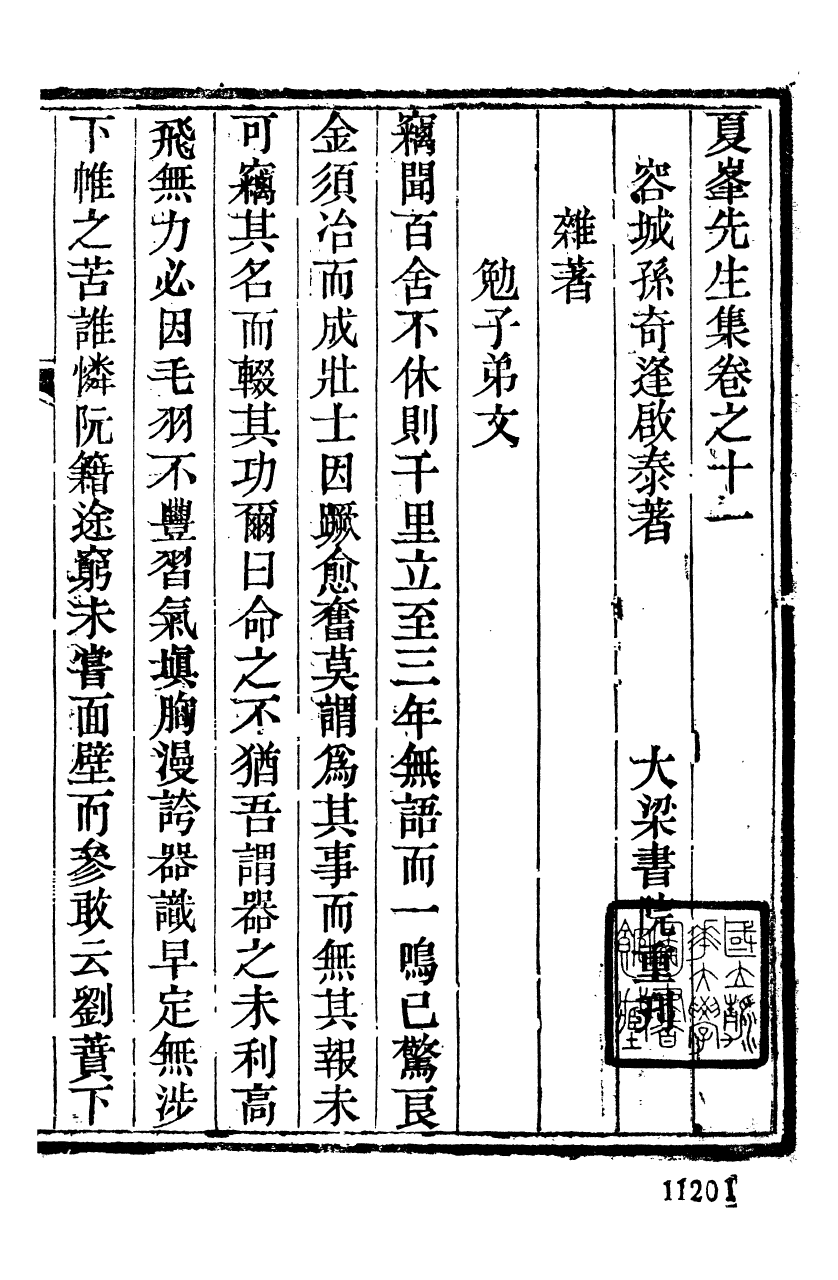 夏峯先生集卷之十一
容城孫奇逢啟泰著 大梁書院重刊
雜著
勉子弟文
竊聞百舍不休則千里立至三年無語而一鳴已驚良
金須冶而成壯士因蹶愈奮莫謂爲其事而無其報未
可竊其名而輟其功爾曰命之不猶吾謂器之未利高
飛無力必因毛羽不豐習氣塡胸漫誇器識早定無涉
下帷之苦誰憐阮籍途窮未嘗面壁而參敢云劉蕡下
國立清華大學圖書館藏
11201